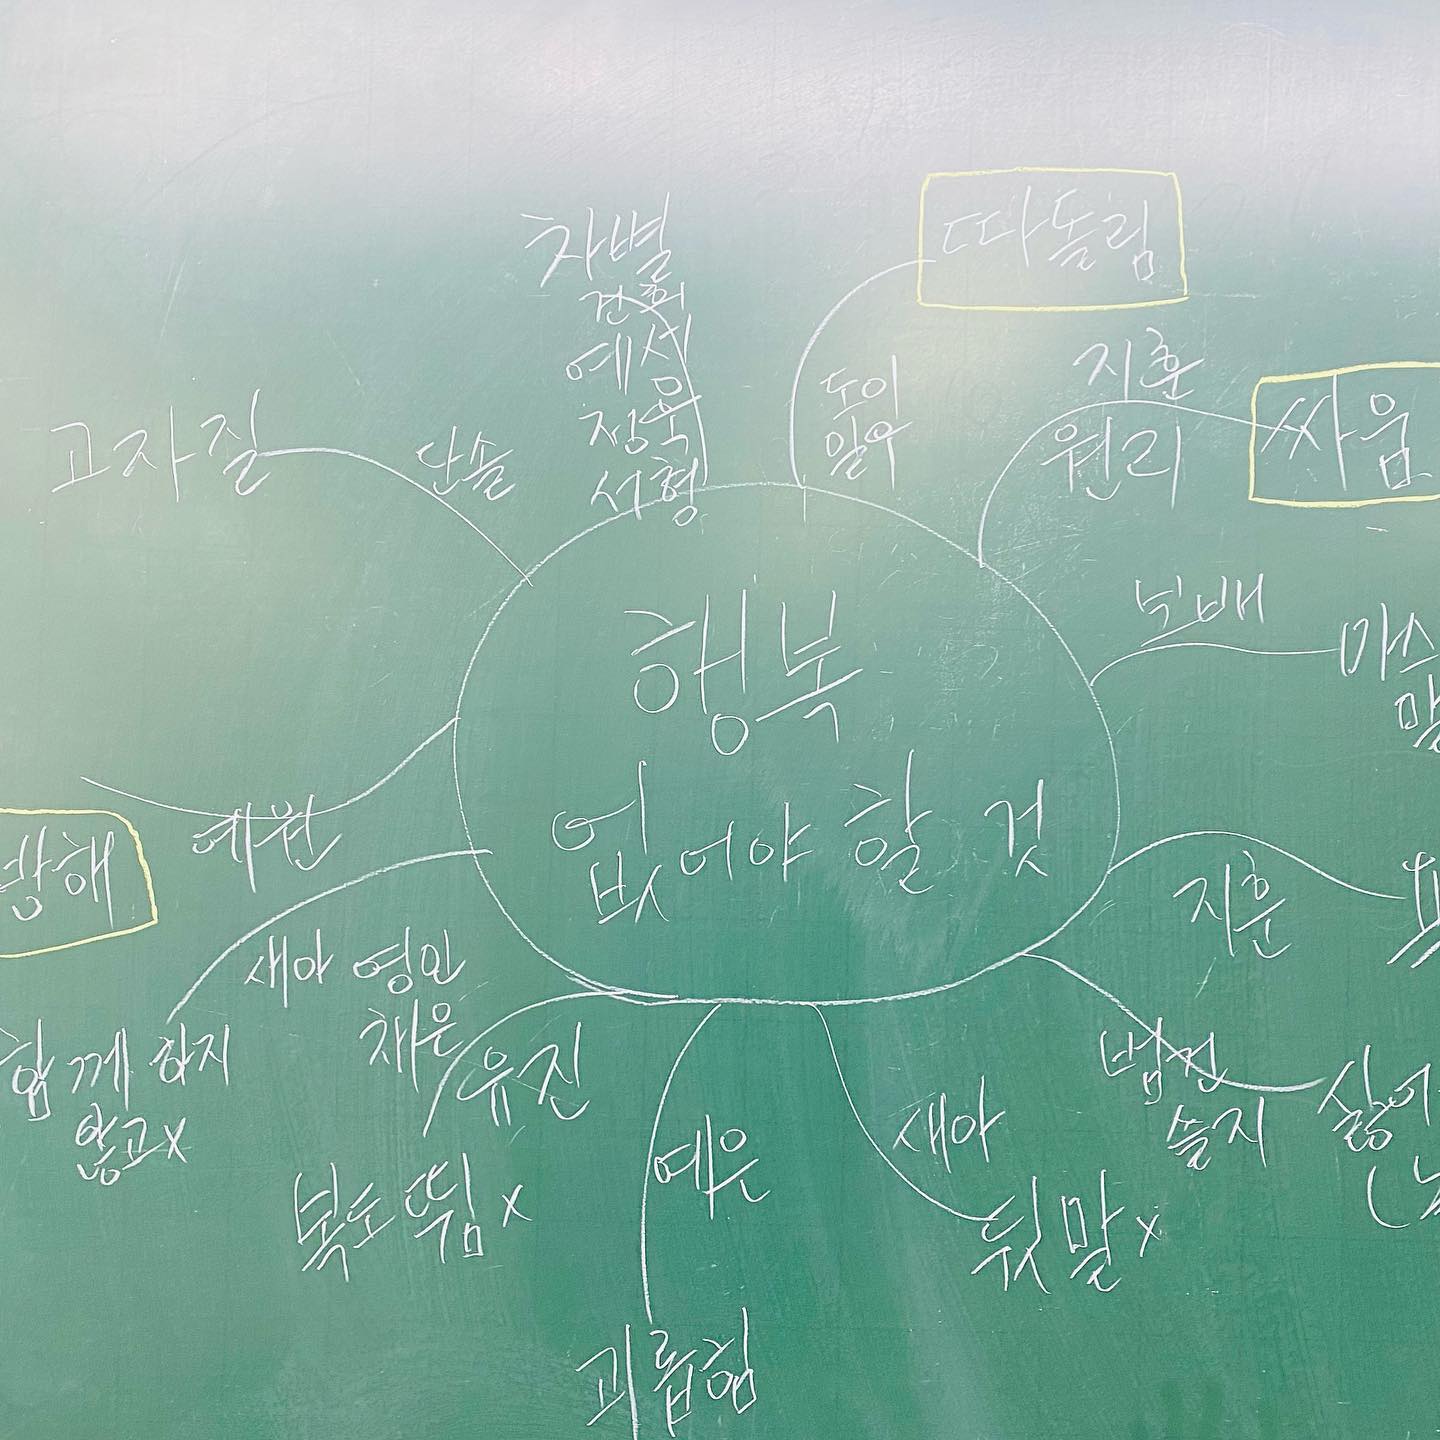 차별
건희
예성
정욱
서형
따돌림
도이
일우
지훈
원리
싸움
고자질
단솔
행복
없어야 할 것
방해
예원
새아 영인
채은
함께 하지
않고x
유진
복도 뜀 x
예은
괴롭힘
새아
뒷말x
지훈
쓸지